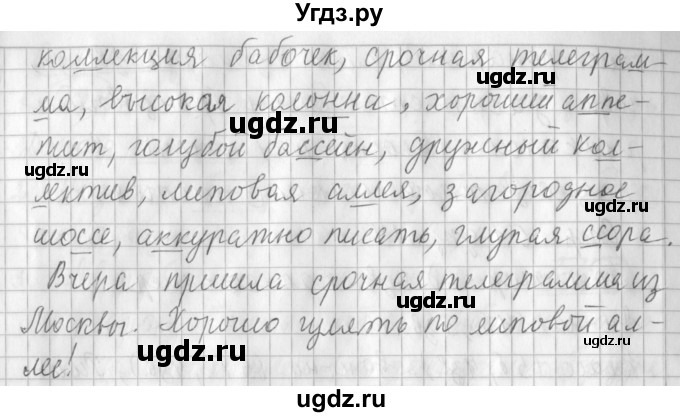 Угдз.ру
коллекция бабочек, срочная телеграм-
ма, высокая колонна, хороший аппе-
тит, голубой бассейн, дружный кол-
лектив, липовая аллея, загородное
шоссе, аккуратно писать, глупая ссора.
Вчера пришла срочная телеграмма из
Москвы. Хорошо гулять по липовой ал-
лее!
ugdz.ru
ugdz.ru
ugdz.ru
ugdz.ru
ugdz.ru
ugdz.ru
ugdz.ru
ugdz.ru
ugdz.ru
ugdz.ru